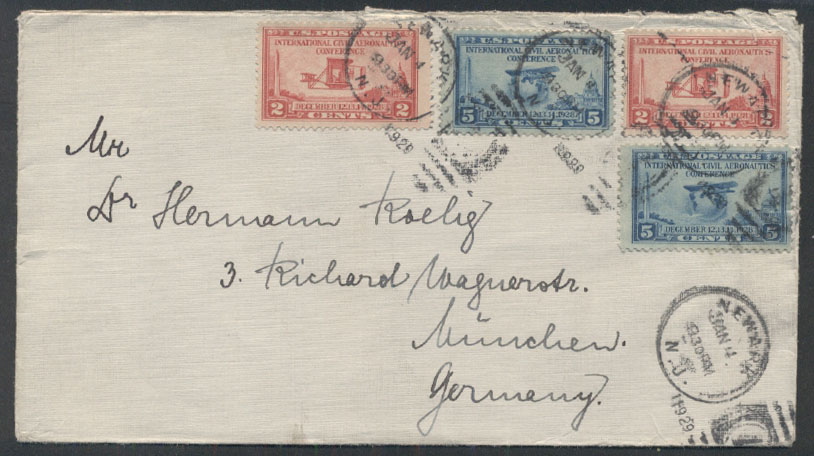 U.S. POSTAGE
INTERNATIONAL CIVIL AERONAUTICS
CONFERENCE
DECEMBER 12.13.14.1928
2 CENTS 2
U.S. POSTAGE
INTERNATIONAL CIVIL AERONAUTICS
CONFERENCE
DECEMBER 12.13.14.1928
5 CENTS 5
U.S. POSTAGE
INTERNATIONAL CIVIL AERONAUTICS
CONFERENCE
DECEMBER 12.13.14.1928
2 CENTS
U.S. POSTAGE
INTERNATIONAL CIVIL AERONAUTICS
CONFERENCE
DECEMBER 12.13.14.1928
5 CENTS 5
NEWARK
JAN 4
930PM
N.J.
1929
Mr
Dr Hermann Roelig
3. Richard Wagnerstr.
München.
Germany.
NEWARK
JAN 4
930PM
N.J.
1929